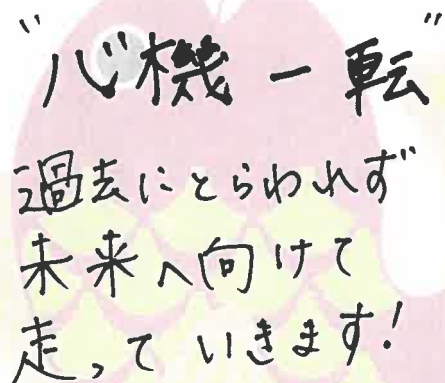 "心機一転"
過去にとらわれず
未来へ向けて
走っていきます!